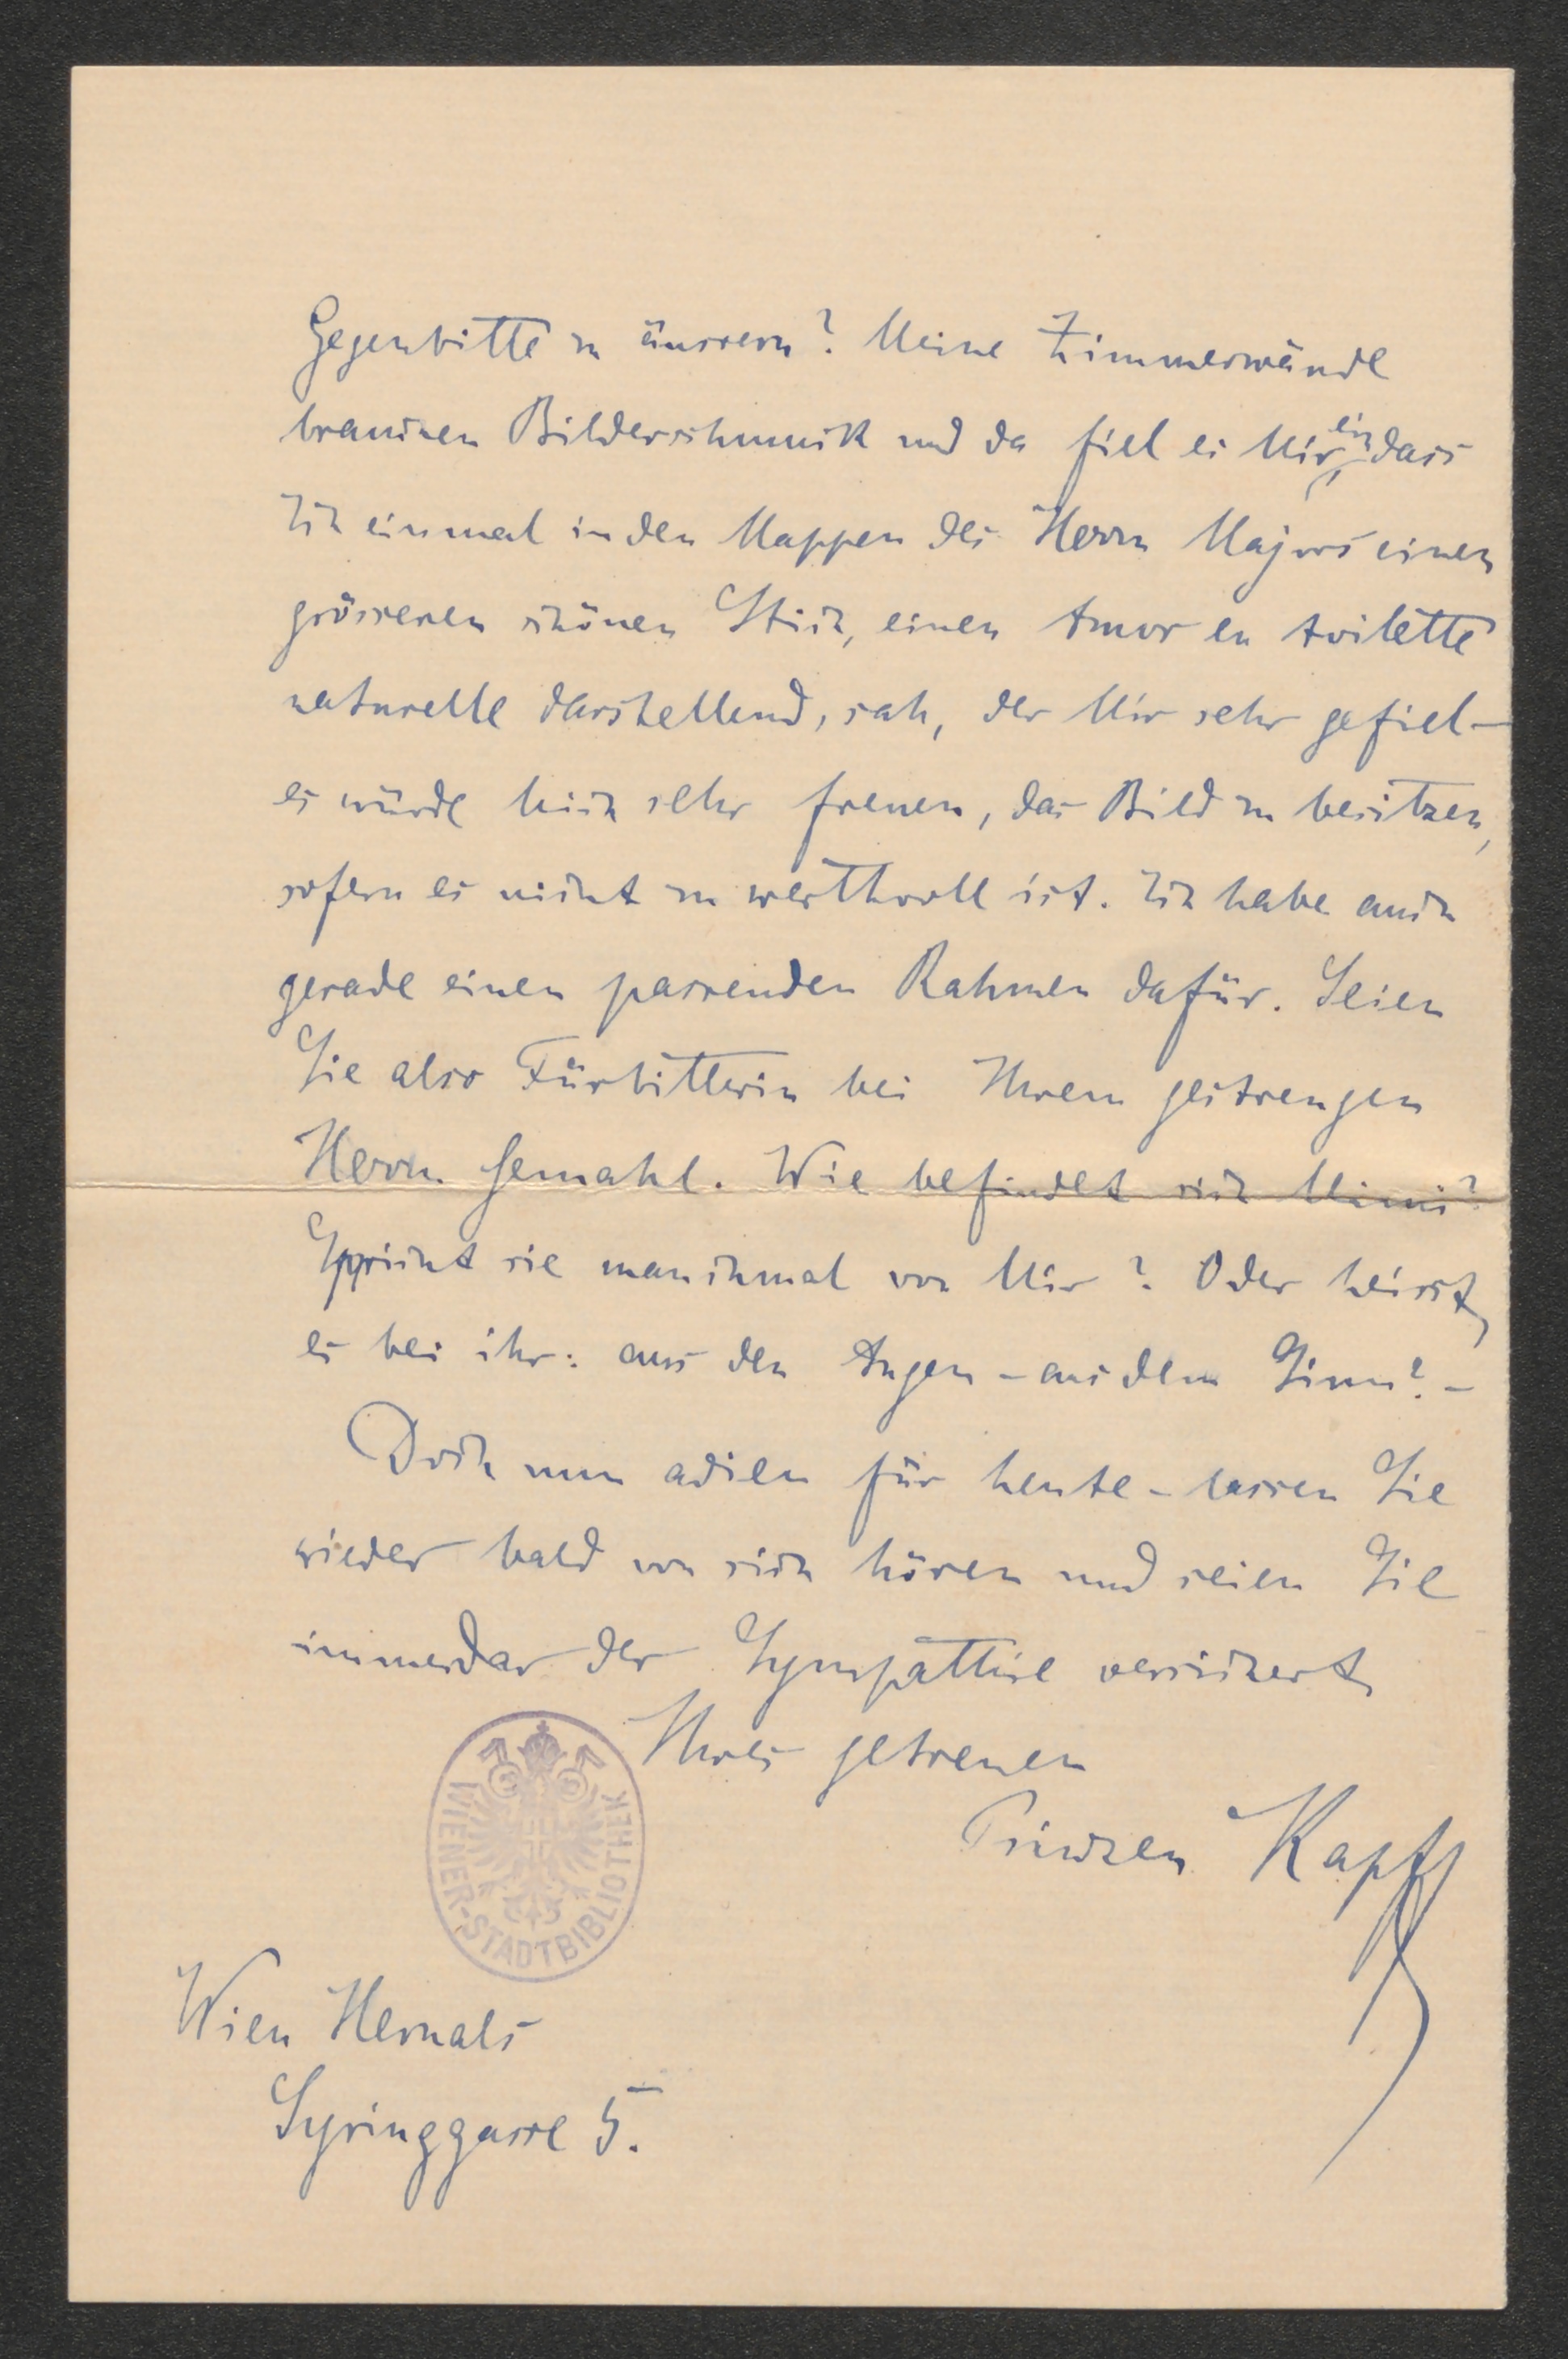 Gegenbitte zu äussern? Meine Zimmerwände
brauchen Bilderschmuck und da fiel es Mir ein, dass
Ich einmal in den Mappen des Herrn Majors einen
grösseren schönen Stich, einen Amor en toilette
naturelle darstellend, sah, der Mir sehr gefiel –
es würde Mich sehr freuen, das Bild zu besitzen,
sofern es nicht zu werthvoll ist. Ich habe auch
gerade einen passenden Rahmen dafür. Seien
Sie also Fürbitterin bei Ihrem gestrengen
Herrn Gemahl. Wie befindet sich Mimi?
Spricht sie manchmal von Mir? Oder heisst
es bei ihr: aus den Augen – aus dem Sinn? –
Doch nun adieu für heute – lassen Sie
wieder bald von sich hören und seien Sie
immerdar der Sympathie versichert
Ihres getreuen
Prinzen Kapf
WIENER-STADTBIBLIOTHEK
Wien Hernals
Syringgasse 5.